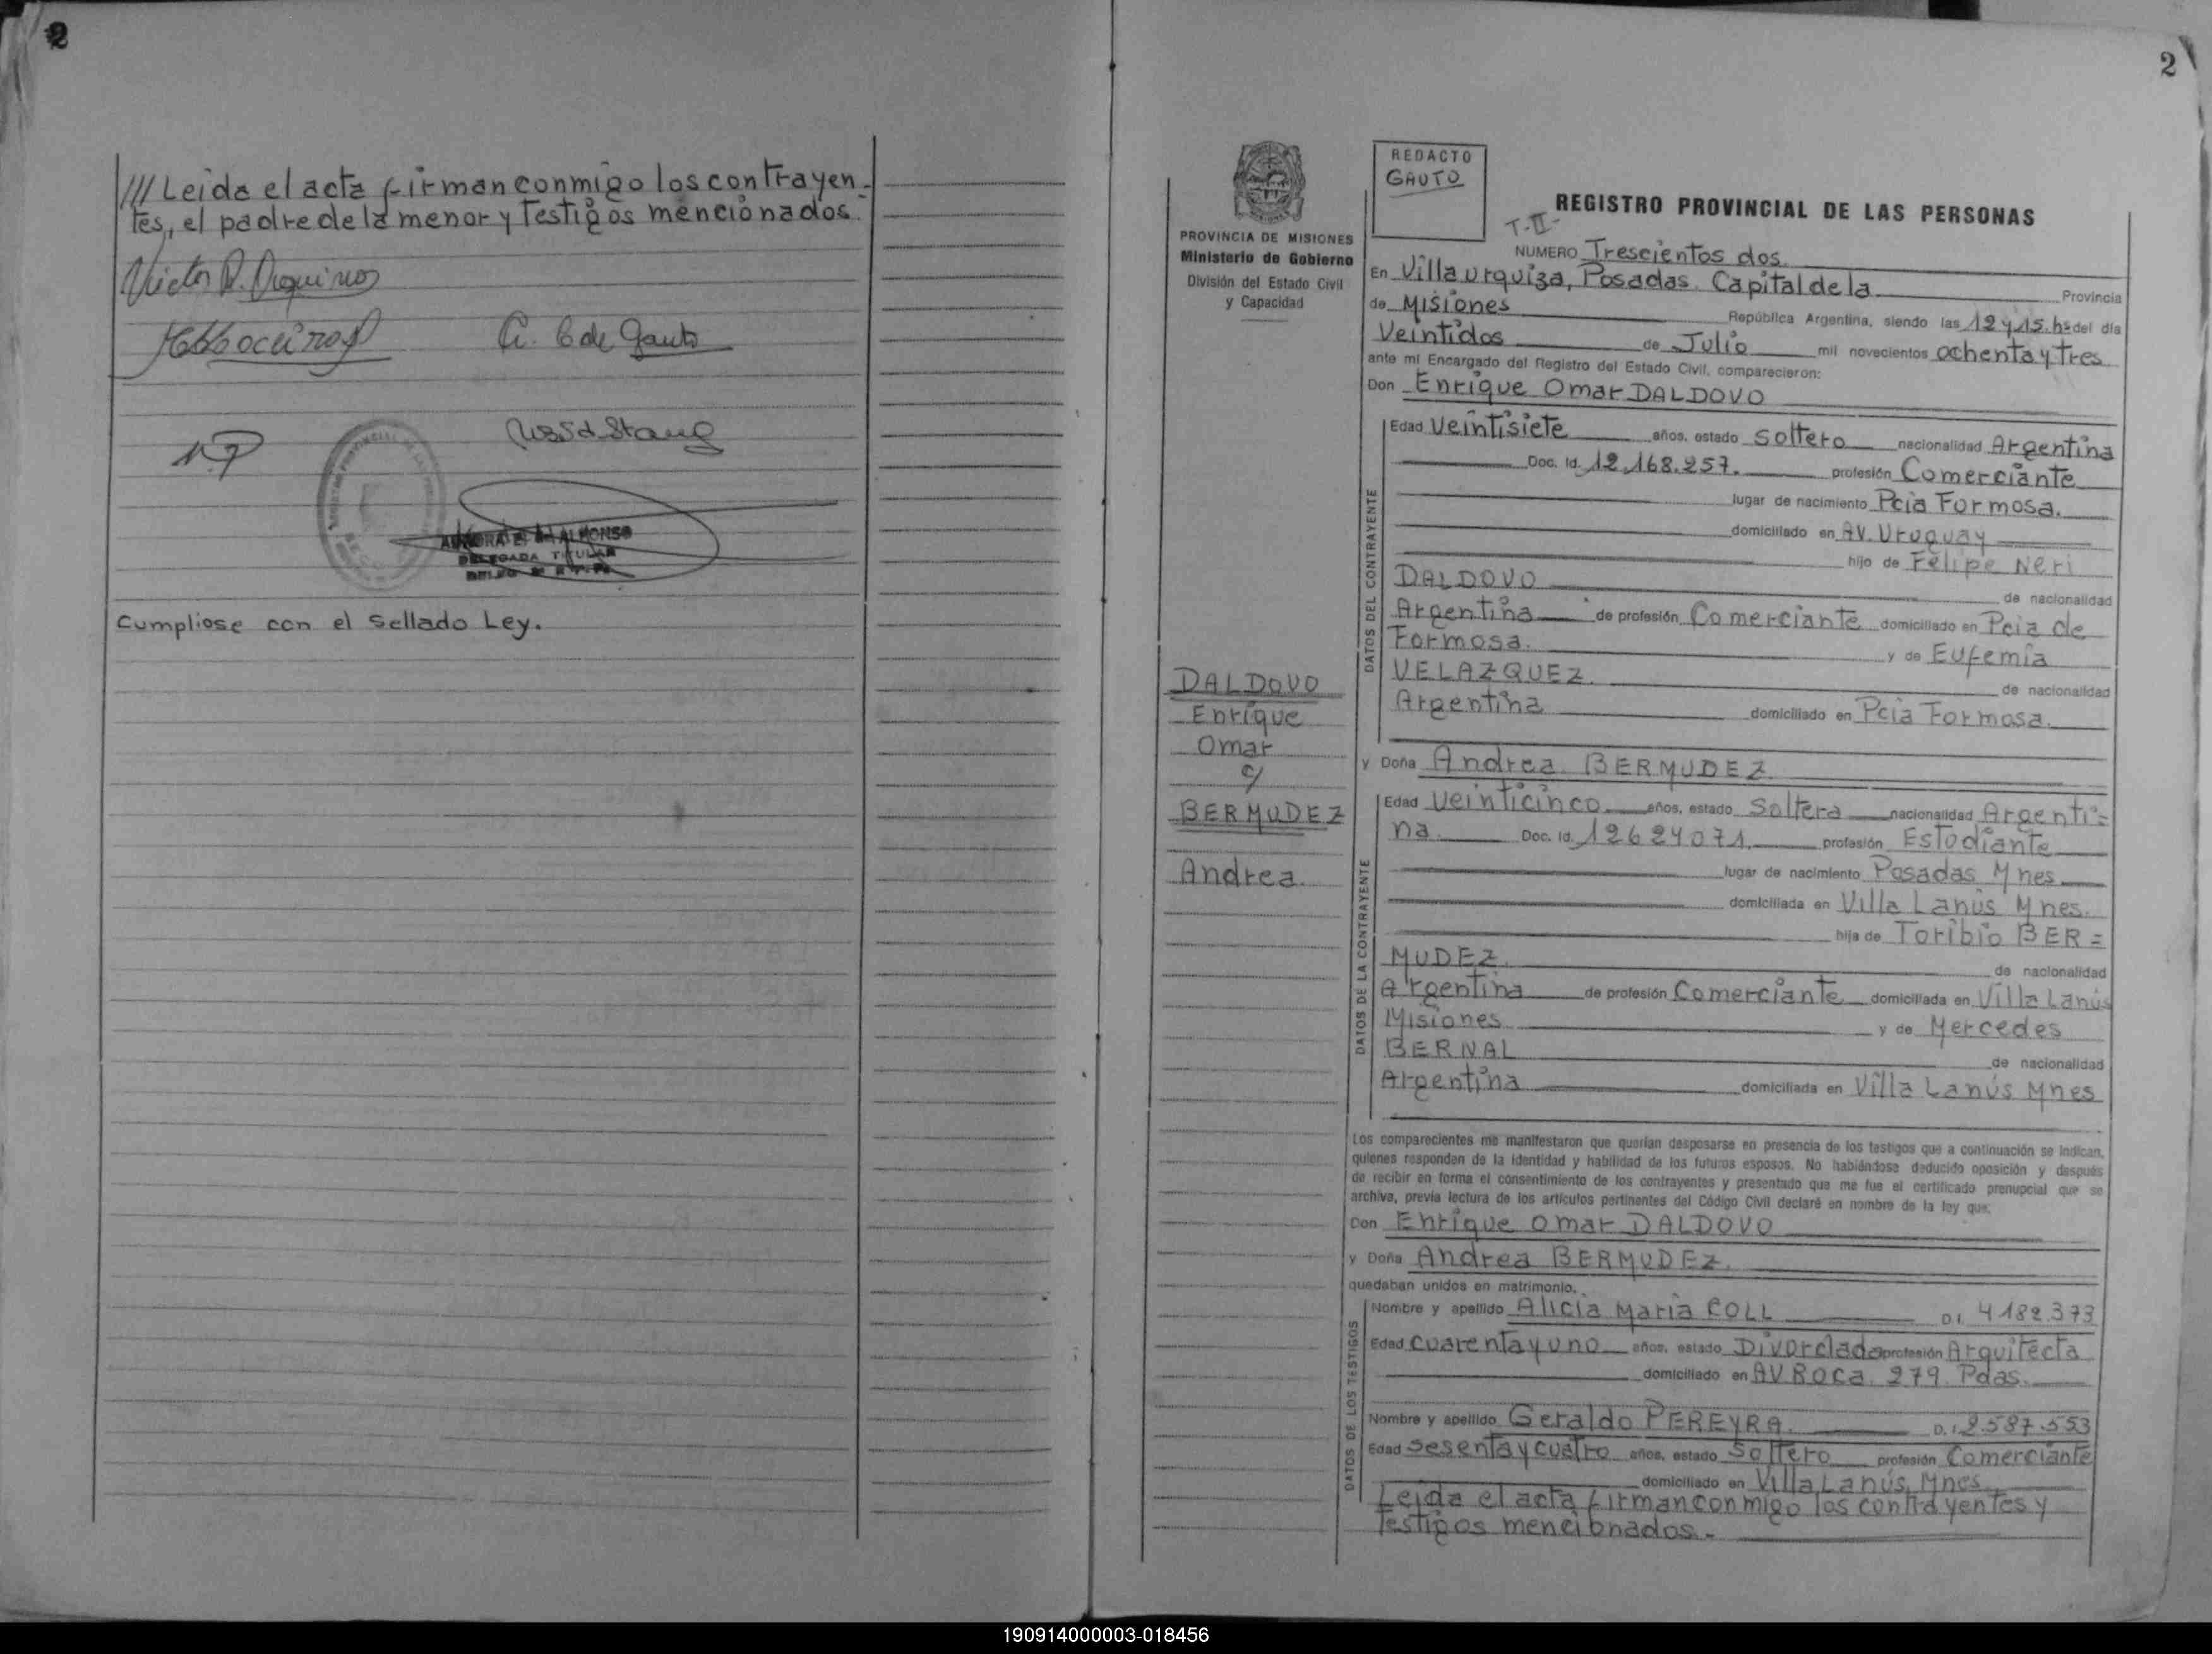 2
/// Leida el acta firman conmigo los contrayen-
tes, el padre de la menor y Testigos mencionados.
AURORA E. ALFONSO
DELEGADA TITULAR
Cumpliose con el Sellado Ley.
2
REDACTO
GAUTO
PROVINCIA DE MISIONES
Ministerio de Gobierno
División del Estado Civil
y Capacidad
REGISTRO PROVINCIAL DE LAS PERSONAS
T-II-
NUMERO Trescientos dos.
En Villa Urquiza, Posadas. Capital de la Provincia
de Misiones República Argentina, siendo las 12 y 15. hs del día
Veintidos de Julio mil novecientos ochenta y tres
ante mi Encargado del Registro del Estado Civil, comparecieron:
Don Enrique Omar DALDOVO
DATOS DEL CONTRAYENTE
Edad Veintisiete años, estado Soltero nacionalidad Argentina
Doc. Id. 12.168.257. profesión Comerciante
lugar de nacimiento Pcia Formosa.
domiciliado en AV. Uruguay
hijo de Felipe Neri
DALDOVO de nacionalidad
Argentina de profesión Comerciante domiciliado en Pcia de
Formosa. y de Eufemia
VELAZQUEZ. de nacionalidad
Argentina domiciliado en Pcia Formosa.
DALDOVO
Enrique
Omar
c/
BERMUDEZ
Andrea.
y Doña Andrea BERMUDEZ
DATOS DE LA CONTRAYENTE
Edad Veinticinco. años, estado Soltera nacionalidad Argenti=
na. Doc. Id. 12624071. profesión Estudiante
lugar de nacimiento Posadas Mnes
domiciliada en Villa Lanús Mnes.
hija de Toribio BER=
MUDEZ. de nacionalidad
Argentina de profesión Comerciante domiciliada en Villa Lanús
Misiones y de Mercedes
BERNAL de nacionalidad
Argentina domiciliada en Villa Lanús Mnes
Los comparecientes me manifestaron que querían desposarse en presencia de los testigos que a continuación se indican,
quienes responden de la identidad y habilidad de los futuros esposos. No habiéndose deducido oposición y después
de recibir en forma el consentimiento de los contrayentes y presentado que me fue el certificado prenupcial que se
archiva, previa lectura de los artículos pertinentes del Código Civil declaré en nombre de la ley que:
Don Enrique Omar DALDOVO
y Doña Andrea BERMUDEZ.
quedaban unidos en matrimonio.
DATOS DE LOS TESTIGOS
Nombre y apellido Alicia Maria COLL D.I. 4182.373
Edad Cuarenta y uno años, estado Divorciada profesión Arquitecta
domiciliado en AV Roca. 279. Pdas.
Nombre y apellido Geraldo PEREYRA. D.I. 2.587.553
Edad Sesenta y cuatro años, estado Soltero profesión Comerciante
domiciliado en Villa Lanús, Mnes
Leida el acta firman conmigo los contrayentes y
Testigos mencionados.-
190914000003-018456